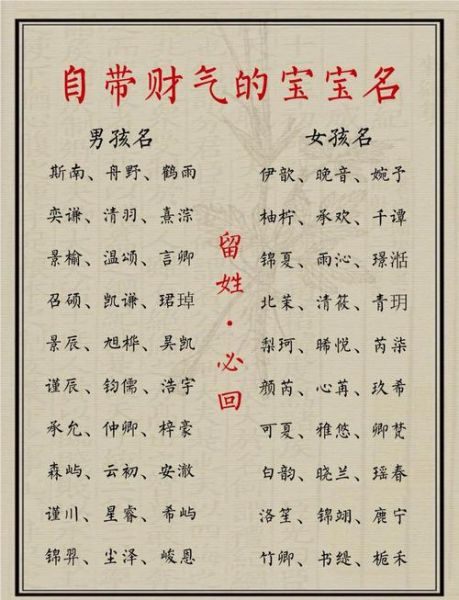 自带财气的宝宝名
男孩名
斯南、舟野、鹤雨
奕谦、清羽、熹淙
景榆、温颂、言卿
召硕、凯谦、珺琸
景辰、旭桦、昊凯
谨辰、钧儒、浩宇
承允、仲卿、梓豪
森屿、云初、安澈
谨川、星睿、希屿
锦羿、尘泽、峻恩
留姓·必回
女孩名
伊歆、晚音、婉予
柚柠、承欢、千谭
锦夏、雨沁、璟湉
北茉、清筱、青玥
梨珂、晞悦、芮柒
颜芮、心苒、玖希
可夏、雅悠、卿梵
白韵、晓兰、瑶春
洛笙、锦翊、鹿宁
竹卿、书缇、栀禾